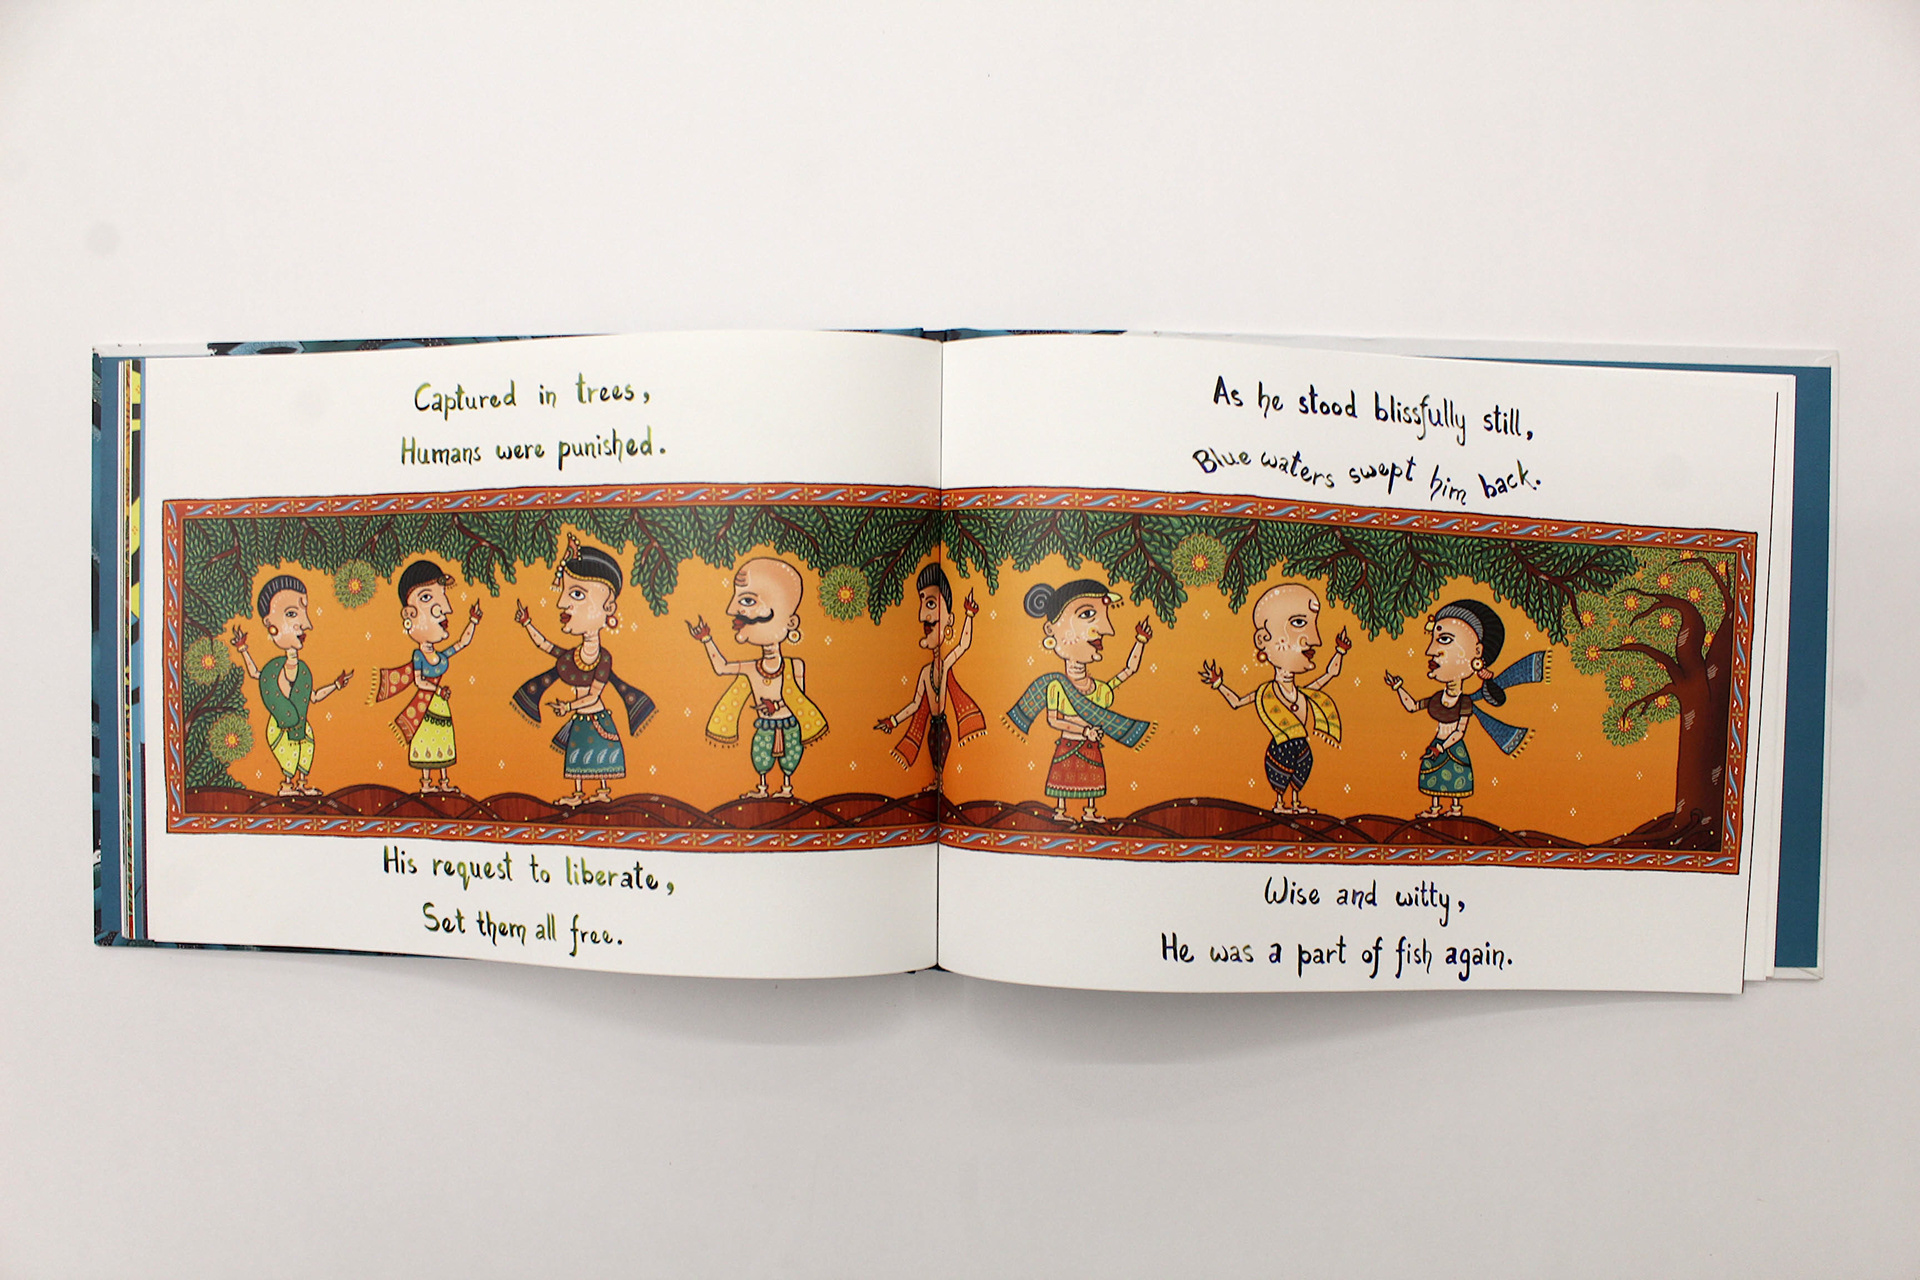 Captured in trees,
Humans were punished.
His request to liberate,
Set them all free.
As he stood blissfully still,
Blue waters swept him back.
Wise and witty,
He was a part of fish again.